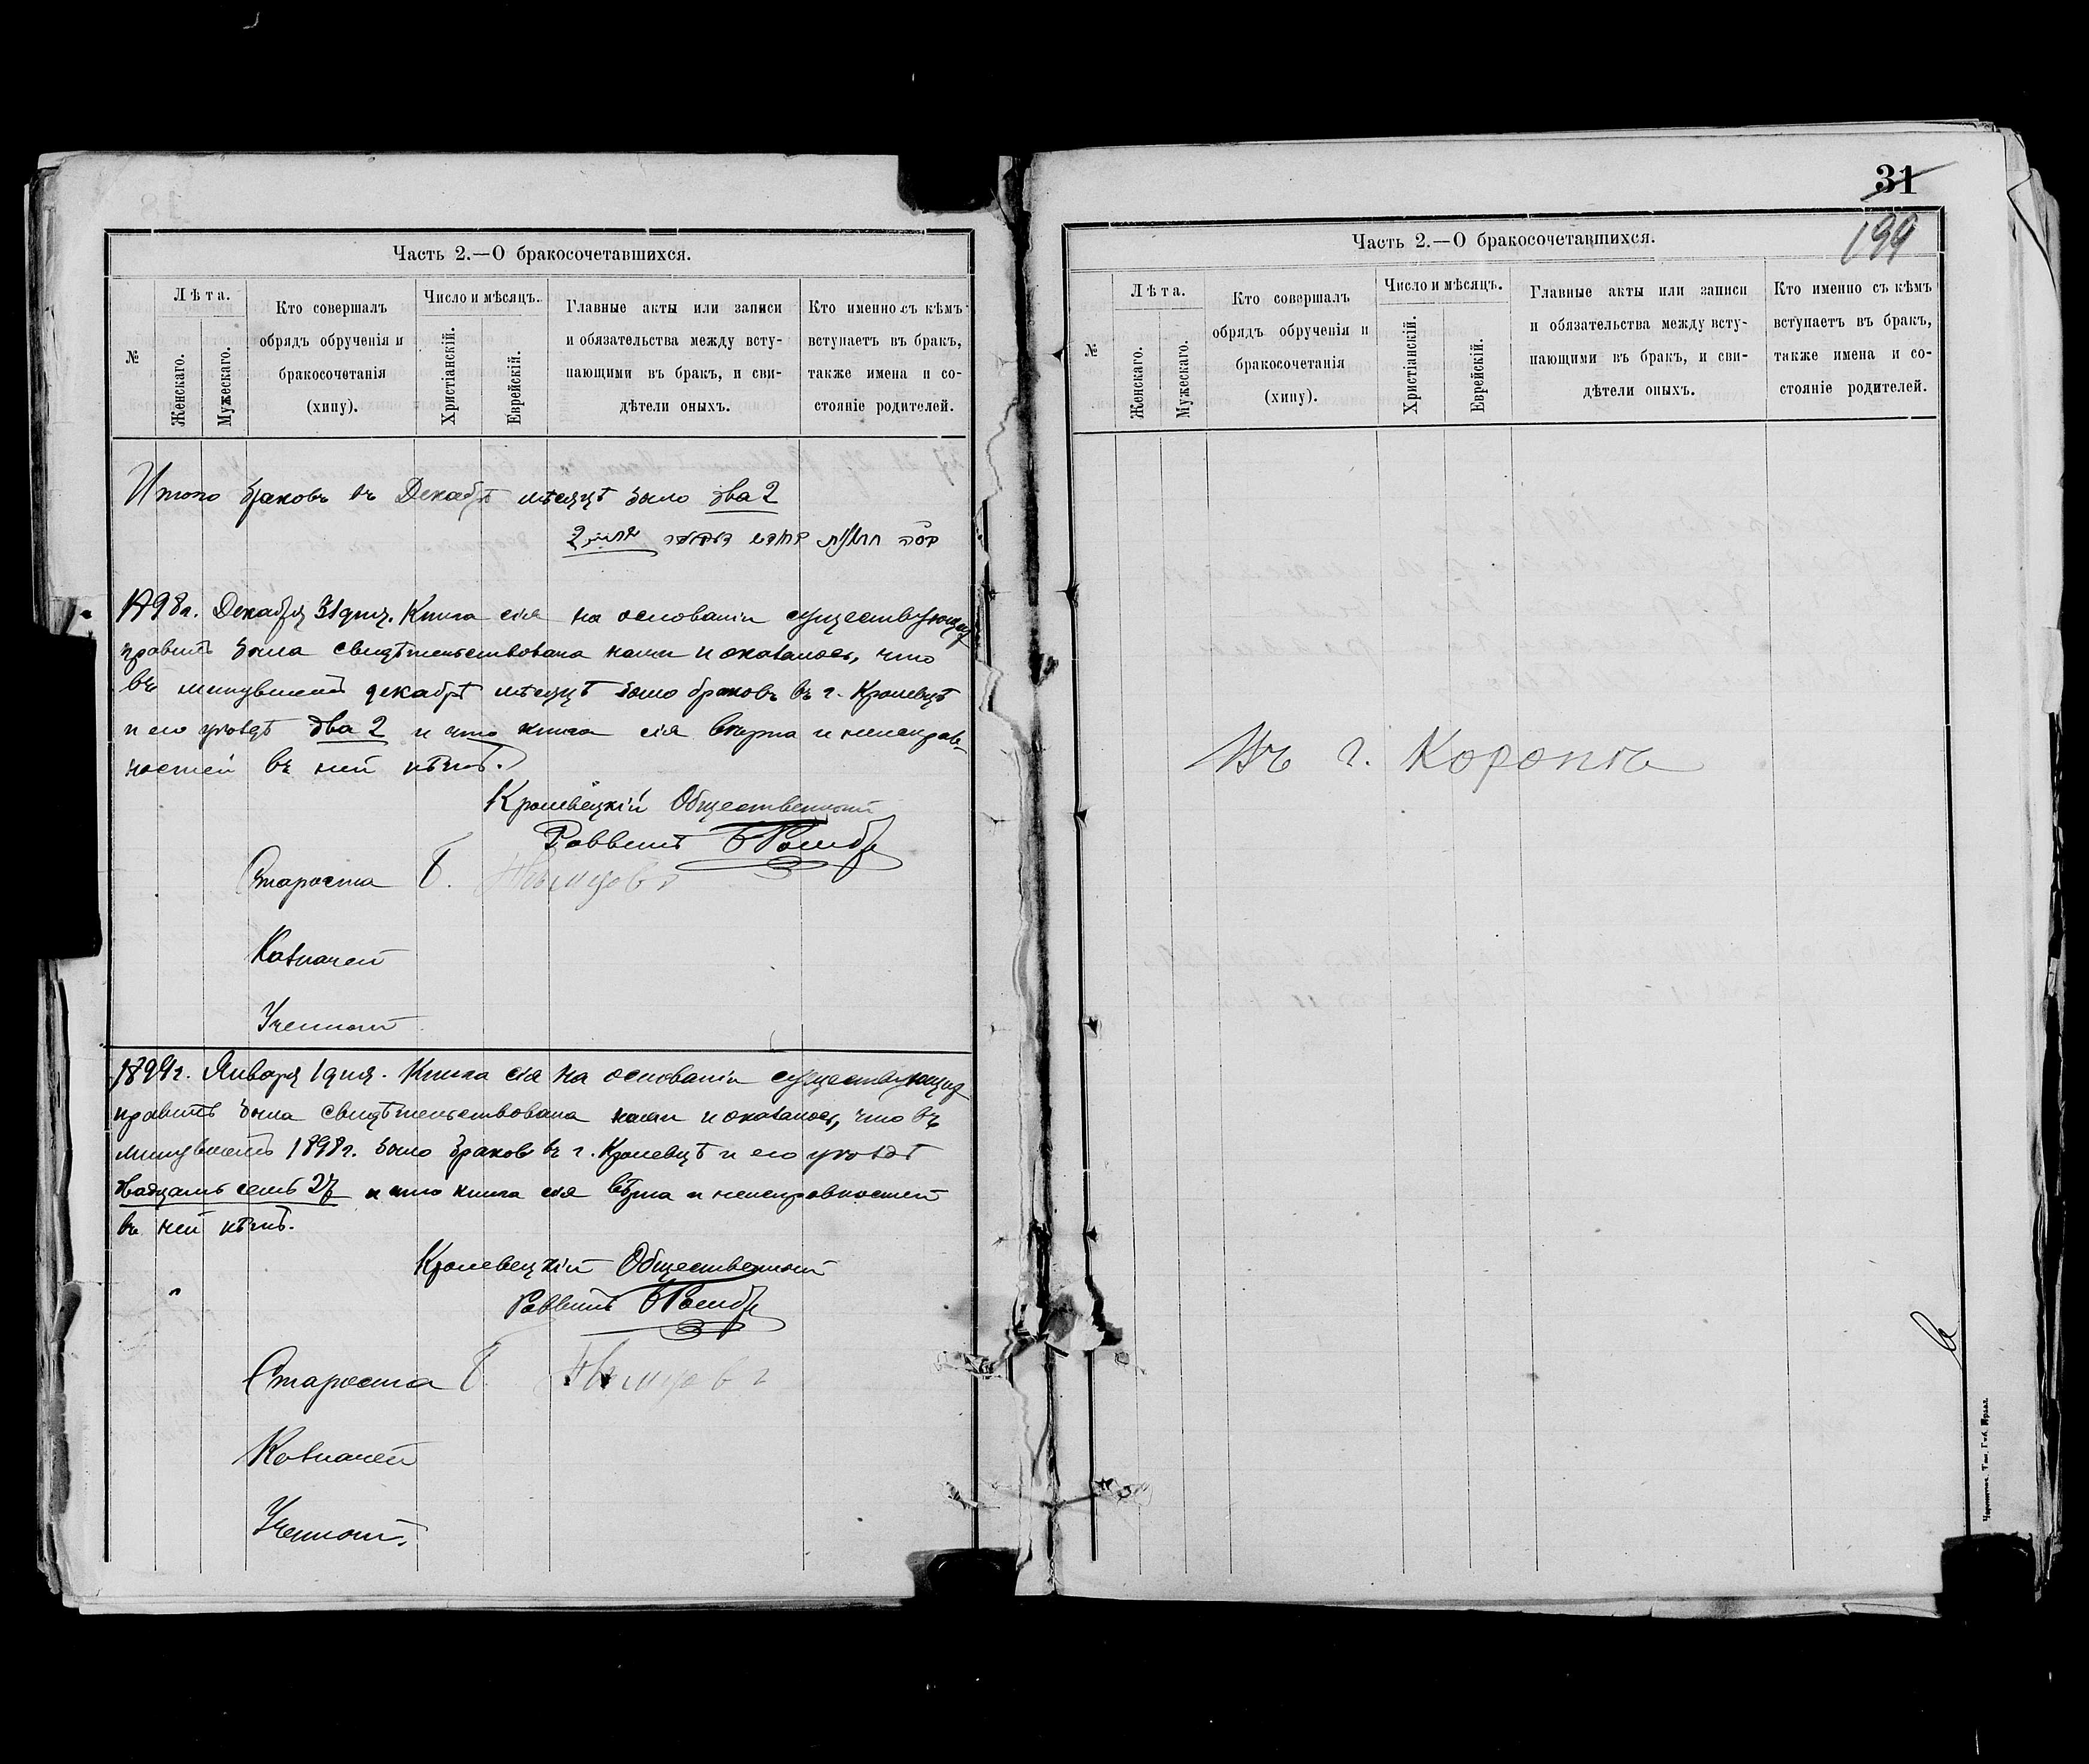 Часть 2.—О бракосочетавшихся.
№
Лѣта.
Женскаго.
Мужескаго.
Кто совершалъ
обрядъ обрученія и
бракосочетанія
(хипу).
Число и мѣсяцъ.
Христіанскій.
Еврейскій.
Главные акты или записи
и обязательства между всту-
пающими въ бракъ, и сви-
дѣтели оныхъ.
Кто именно съ кѣмъ
вступаетъ въ бракъ,
также имена и со-
стояніе родителей.
Итого браковъ въ Декабрѣ мѣсяцѣ было два 2
1898 г. Декабря 31 дня. Книга сія на основаніи существующихъ
правилъ была свидѣтельствована нами и оказалось, что
въ минувшемъ декабрѣ мѣсяцѣ было браковъ въ г. Кролевцѣ
и его уѣздѣ два 2 и что книга сія вѣрна и неисправ-
ностей въ ней нѣтъ.
Кролевецкій Общественный
Раввинъ
Староста Б.
Казначей
Ученый
1899 г. Января 1 дня. Книга сія на основаніи существующихъ
правилъ была свидѣтельствована нами и оказалось, что въ
минувшемъ 1898 г. было браковъ въ г. Кролевцѣ и его уѣздѣ
двадцать семь 27 и что книга сія вѣрна и неисправностей
въ ней нѣтъ.
Кролевецкій Общественный
Раввинъ
Староста Б.
Казначей
Ученый.
31
199
Часть 2.—О бракосочетавшихся.
№
Лѣта.
Женскаго.
Мужескаго.
Кто совершалъ
обрядъ обрученія и
бракосочетанія
(хипу).
Число и мѣсяцъ.
Христіанскій.
Еврейскій.
Главные акты или записи
и обязательства между всту-
пающими въ бракъ, и сви-
дѣтели оныхъ.
Кто именно съ кѣмъ
вступаетъ въ бракъ,
также имена и со-
стояніе родителей.
Въ г. Коропѣ